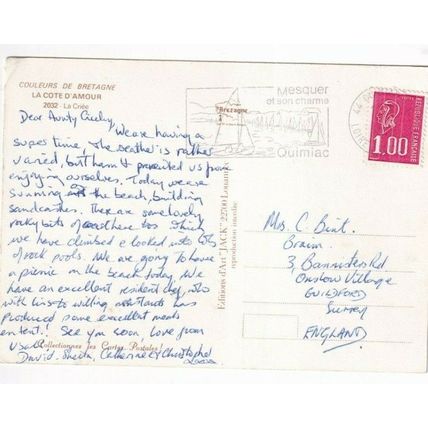 COULEURS DE BRETAGNE
LA COTE D'AMOUR
2032 - La Criée
Dear Aunty Cicely,
We are having a
super time. The weather is rather
varied, but hasn't prevented us from
enjoying ourselves. Today we are
sunning on the beach, building
sandcastles. There are some lovely
rocky bits of coast here too which
we have climbed & looked into lots
of rock pools. We are going to have
a picnic on the beach today. We
have an excellent resident chef, who
with his willing assistants has
produced some excellent meals
See you soon. Love from
us all
David, Sheila, Catherine & Christopher
Collectionnez les Cartes Postales!
Editions d'Art "JACK"
reproduction interdite
Bretagne
Mesquer
et son charme
Quimiac
44
1.00
REPUBLIQUE FRANCAISE
Mrs. C. Bint.
3, Bannisters Rd
Onslow Village
GUILDFORD
Surrey
ENGLAND